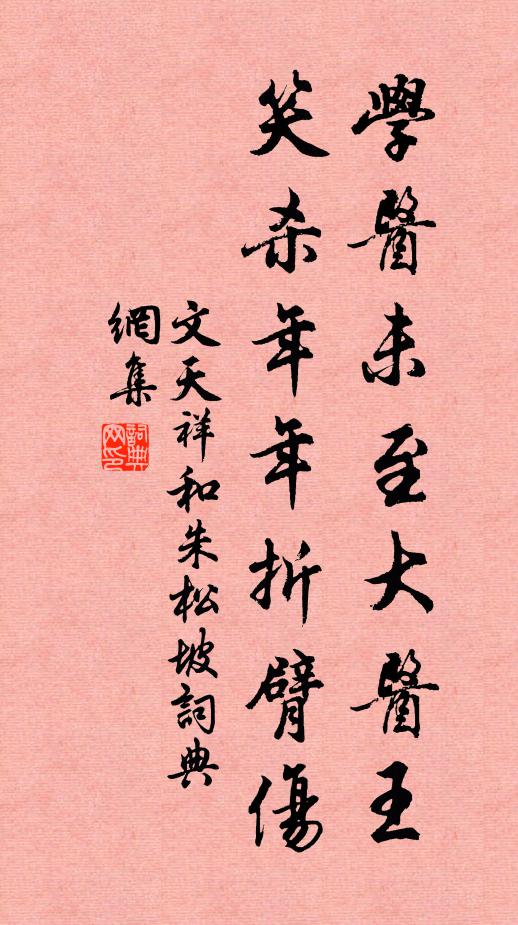 學醫未至大醫王
笑杀年年折臂傷
文天祥和朱松坡詞典
網集
詞典網印